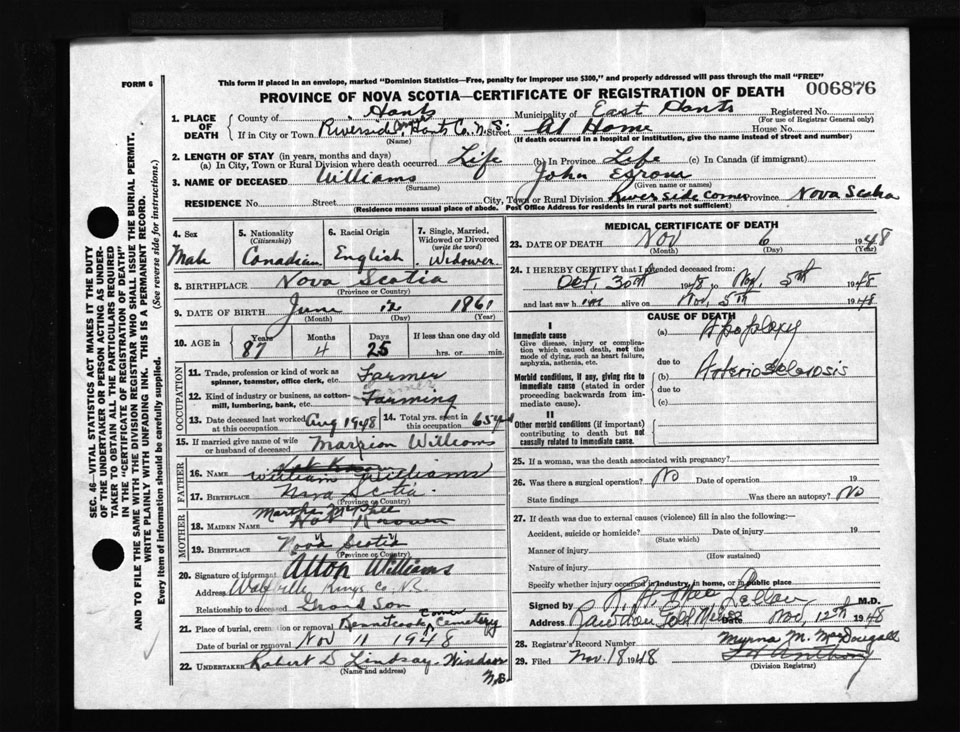 FORM 6
This form if placed in an envelope, marked "Dominion Statistics—Free, penalty for improper use $300," and properly addressed will pass through the mail "FREE"
PROVINCE OF NOVA SCOTIA—CERTIFICATE OF REGISTRATION OF DEATH 006876
1. PLACE OF DEATH
County of Hants Municipality of East Hants Registered No.
(For use of Registrar General only)
If in City or Town Riverside Corner Hants Co. N.S. Street At Home House No.
(Name) (If death occurred in a hospital or institution, give the name instead of street and number)
2. LENGTH OF STAY (in years, months and days)
(a) In City, Town or Rural Division where death occurred Life (b) In Province Life (c) In Canada (if immigrant)
3. NAME OF DECEASED Williams John Esrom
(Surname) (Given name or names)
RESIDENCE No. Street City, Town or Rural Division Riverside Corner Province Nova Scotia
(Residence means usual place of abode. Post Office Address for residents in rural parts not sufficient)
4. Sex Male
5. Nationality (Citizenship) Canadian
6. Racial Origin English
7. Single, Married, Widowed or Divorced (write the word) Widower
8. BIRTHPLACE Nova Scotia
(Province or Country)
9. DATE OF BIRTH June 12 1861
(Month) (Day) (Year)
10. AGE in Years Months Days If less than one day old
87 4 25 hrs. or min.
OCCUPATION
11. Trade, profession or kind of work as spinner, teamster, office clerk, etc. Farmer
12. Kind of industry or business, as cotton-mill, lumbering, bank, etc. Farming
13. Date deceased last worked at this occupation Aug 1948
14. Total yrs. spent in this occupation 65 yrs
15. If married give name of wife or husband of deceased Marrion Williams
FATHER
16. NAME Not Known William Williams
17. BIRTHPLACE Nova Scotia
(Province or Country)
MOTHER
18. MAIDEN NAME Martha McPhee Not Known
19. BIRTHPLACE Nova Scotia
(Province or Country)
20. Signature of informant Alton Williams
Address Wolfville Kings Co. N.S.
Relationship to deceased Grand Son
21. Place of burial, cremation or removal Kennetcook Corner Cemetery
Date of burial or removal Nov 11 1948
22. UNDERTAKER Robert D Lindsay Windsor N.S.
(Name and address)
MEDICAL CERTIFICATE OF DEATH
23. DATE OF DEATH Nov 6 1948
(Month) (Day) (Year)
24. I HEREBY CERTIFY that I attended deceased from:
Oct. 30th 1948 to Nov. 5th 1948
and last saw him alive on Nov. 5th 1948
CAUSE OF DEATH
I
Immediate cause
Give disease, injury or complication which caused death, not the mode of dying, such as heart failure, asphyxia, asthenia, etc.
(a) Apoplexy
due to
Morbid conditions, if any, giving rise to immediate cause (stated in order proceeding backwards from immediate cause).
(b) Arteriosclerosis
due to
(c)
II
Other morbid conditions (if important) contributing to death but not causally related to immediate cause.
25. If a woman, was the death associated with pregnancy?
26. Was there a surgical operation? No Date of operation 19
State findings Was there an autopsy? No
27. If death was due to external causes (violence) fill in also the following:—
Accident, suicide or homicide? Date of injury 19
(State which)
Manner of injury
(How sustained)
Nature of injury
Specify whether injury occurred in industry, in home, or in public place
Signed by M.D.
Address Gold Mines Date Nov, 12th 1948
28. Registrar's Record Number Myrna M. McDougall
29. Filed Nov. 18 1948
(Division Registrar)
SEC. 46—VITAL STATISTICS ACT MAKES IT THE DUTY
OF THE UNDERTAKER OR PERSON ACTING AS UNDER-
TAKER TO OBTAIN ALL THE PARTICULARS REQUIRED
IN THE "CERTIFICATE OF REGISTRATION OF DEATH"
AND TO FILE THE SAME WITH THE DIVISION REGISTRAR WHO SHALL ISSUE THE BURIAL PERMIT.
WRITE PLAINLY WITH UNFADING INK. THIS IS A PERMANENT RECORD.
Every item of information should be carefully supplied. (See reverse side for instructions.)